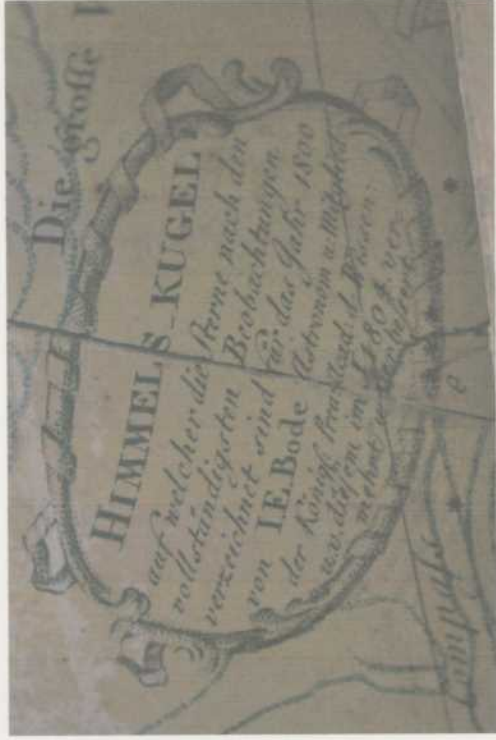 Die große
HIMMELS KUGEL
auf welcher die Sterne nach den
vollständigsten Beobachtungen
verzeichnet sind für das Jahr 1800
von I.E. Bode Astronom u. Mitglied
der Königl. Preuss. Acad. d. Wissen.
u.v. diesem im J. 1804 ver-
mehrt u.
Compaſs
e